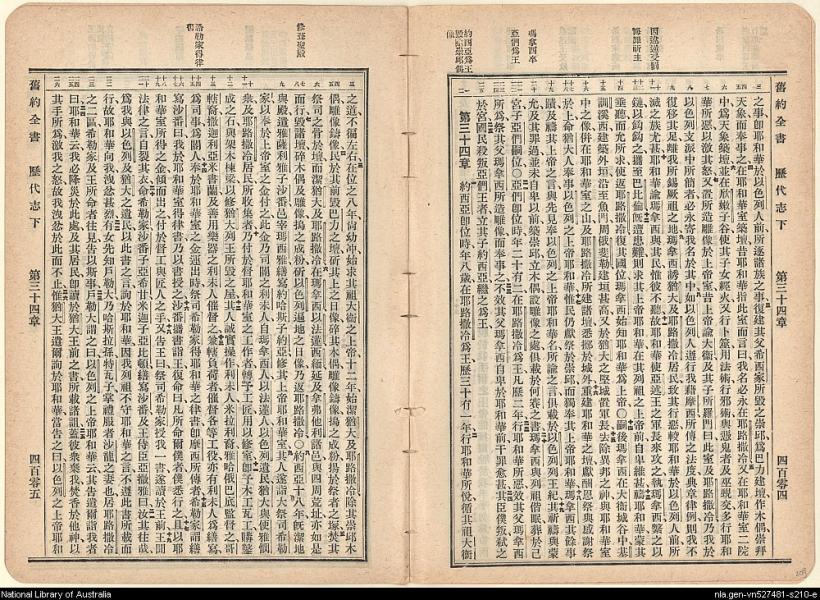 因效逐滅之諸族
悔罪祈主
瑪拿西卒
亞們爲王
約西亞爲王
毀除崇邱偶像
舊約全書 歷代志下 第三十四章 四百零四
之事卽耶和華於以色列人前所逐諸族之事復建其父希西家所毀之崇邱爲巴力建壇作木偶崇拜
天象而奉事之在耶和華室築壇昔耶和華指此室而言曰我名必永在耶路撒冷又在耶和華室二院
中爲天象築壇並在欣嫩子谷使其子女經火又行卜筮用法術行邪術與憑鬼者及巫覡交多行耶和
華所惡以激其怒又置所造雕像於上帝室昔上帝諭大衞及其子所羅門曰此室及耶路撒冷乃我於
以色列支派中所簡者必永寄我名於其中如以色列人遵行我藉摩西所傳之法度典章律例則我不
復移其足離我所錫厥祖之地瑪拿西誘猶大及耶路撒冷居民致其行惡較耶和華於以色列人前所
滅之族尤甚耶和華諭瑪拿西與其民惟彼不聽故耶和華使亞述王之軍長來攻之執瑪拿西繫之以
鏈以鈎鈎之攜至巴比倫旣遭患難則求其上帝耶和華在其列祖之上帝前自卑維甚禱耶和華蒙其
垂聽而允所求使返耶路撒冷復其國位瑪拿西始知耶和華爲上帝○嗣後瑪拿西在大衞城谷中基
訓溪西建築外垣沿至魚門周俄斐勒建垣甚高又於猶大之堅城置軍長去除異邦之神與耶和華室
中之像與在耶和華室之山及耶路撒冷所建諸壇悉擲於城外重建耶和華之壇獻酬恩祭與感謝祭
於上命猶大人奉事以色列之上帝耶和華惟民仍獻祭於崇邱而獨奉其上帝耶和華瑪拿西其餘事
蹟及禱其上帝之言與先見奉以色列之上帝耶和華名所諭之言俱載於以色列列王紀其祈禱與蒙
允及其罪過並未自卑以前築崇邱立木偶設雕像之處俱載於何賽之書瑪拿西與列祖偕眠葬於己
宮子亞們嗣位○亞們卽位時年二十有二在耶路撒冷爲王凡二年行耶和華所惡效其父瑪拿西
所爲祭其父瑪拿西所造雕像而奉事之不效其父瑪拿西自卑於耶和華前干罪愈甚其臣僕叛弒之
於宮國民殺叛亞們王者立其子約西亞繼之爲王
第三十四章 約西亞卽位時年八歲在耶路撒冷爲王歷三十有一年行耶和華所悅循其祖大衞
修葺聖殿
希勒家得律書
之道不偏左右在位之八年尙幼冲始求其祖大衞之上帝十二年始潔猶大及耶路撒冷除其崇邱木
偶雕像鑄像民於其前毀巴力之壇斫其上之日像碎其木偶雕像鑄像搗之成粉揚於祭者之塚焚其
祭司之骨於壇而潔猶大及耶路撒冷在瑪拿西以法蓮西緬延及拿弗他利諸邑與四周荒土亦如是
而行毀諸壇碎木偶及雕像搗之成粉斫以色列遍地之日像乃返耶路撒冷○約西亞十八年旣潔地
與殿遣雅薩利雅子沙番邑宰瑪西雅繕寫約哈斯子約亞修其上帝耶和華室其人遂詣大祭司希勒
家以奉於上帝室之金付之此金乃司閽之利未人自瑪拿西人以法蓮人以色列遺民猶大與便雅憫
衆及耶路撒冷居民所收集者乃付於督耶和華室之工作者轉予工匠用以修室卽予木工瓦工購鑿
成之石與架木棟梁以修猶大列王所毀之屋其人誠實操作利未人米拉利裔雅哈俄巴底監督之哥
轄裔撒迦利亞米書蘭及善用樂器之利未人催督之兼轄負荷者催督各等工役亦有利未人爲繕寫
爲司事爲閽人奉於耶和華室之金運出時祭司希勒家得耶和華之律書卽摩西所傳者希勒家謂繕
寫沙番曰我於耶和華室得律書乃以書授之沙番攜書詣王復命曰凡所命爾僕者僕悉行之且以耶
和華室所得之金傾而出之付於督工與匠人之手又告王曰祭司希勒家授我一書遂讀於王前王聞
法律之言自裂其衣命希勒家沙番子亞希甘米迦子亞比頓繕寫沙番及王侍臣亞撒雅曰爾其往哉
爲我與以色列及猶大之遺民以此書之言詢於耶和華因我列祖不守耶和華之言不遵此書所載而
行故耶和華向我洩忿甚烈有女先知戶勒大乃哈斯拉孫特瓦子掌禮服者沙龍之妻也居耶路撒冷
之二區希勒家及王所命者往見并以斯事戶勒大謂之曰以色列之上帝耶和華云其告遣爾詣我者
曰耶和華云我必降災於此處及其居民卽讀於猶大王前之書所載諸詛蓋彼衆棄我焚香於他神以
其手所爲激我之怒故我洩忿於此而不止惟猶大王遣爾詢於耶和華當告之曰以色列之上帝耶和
舊約全書 歷代志下 第三十四章 四百零五
National Library of Australia
nla.gen-vn527481-s210-e